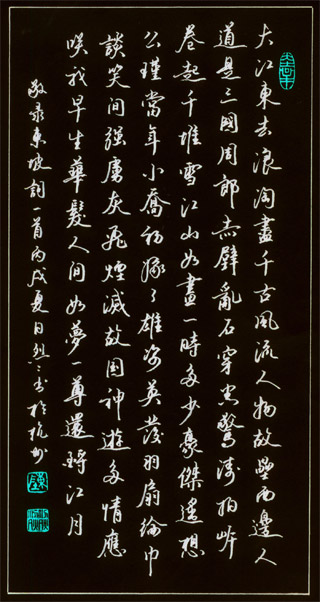 大江東去浪淘盡千古風流人物故壘西邊人
道是三國周郎赤壁亂石穿空驚濤拍岸
卷起千堆雪江山如畫一時多少豪傑遙想
公瑾當年小喬初嫁了雄姿英發羽扇綸巾
談笑間强虜灰飛煙滅故國神遊多情應
咲我早生華髮人間如夢一尊還酹江月
敬录東坡詞一首丙戌夏日書於杭州